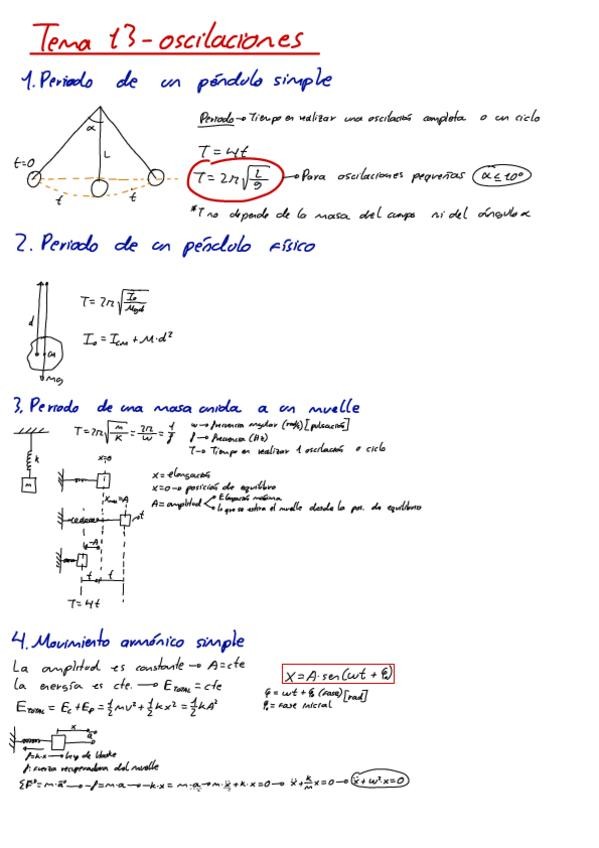 Tema 13 - oscilaciones
1. Periodo de un péndulo simple
Periodo → Tiempo en realizar una oscilación completa o un ciclo
α
T = 4t
t=0
L
T = 2π√(L/g) → Para oscilaciones pequeñas α ≤ 10°
t t
*T no depende de la masa del cuerpo ni del ángulo α
2. Periodo de un péndulo físico
T = 2π√(I₀/Mgd)
d
I₀ = I_CM + M·d²
CM
Mg
3. Periodo de una masa unida a un muelle
T = 2π√(m/K) = 2π/ω = 1/f
ω → frecuencia angular (rad/s) [pulsación]
f → frecuencia (Hz)
T → Tiempo en realizar 1 oscilación o ciclo
k
x=0
m
x = elongación
x=0 → posición de equilibrio
x_max=A
A = amplitud < Elongación máxima
lo que se estira el muelle desde la pos. de equilibrio
t
-A
t t
T = 4t
4. Movimiento armónico simple
La amplitud es constante → A = cte
X = A·sen(ωt + φ₀)
la energía es cte. → E_TOTAL = cte
φ = ωt + φ₀ (fase) [rad]
φ₀ = fase inicial
E_TOTAL = E_c + E_p = ½mv² + ½kx² = ½kA²
x
a
f=k·x → ley de Hooke
f: fuerza recuperadora del muelle
ΣF = m·a → -f = m·a → -k·x = m·a → m·ẍ + k·x = 0 → ẍ + k/m x = 0 → ẍ + ω²x = 0